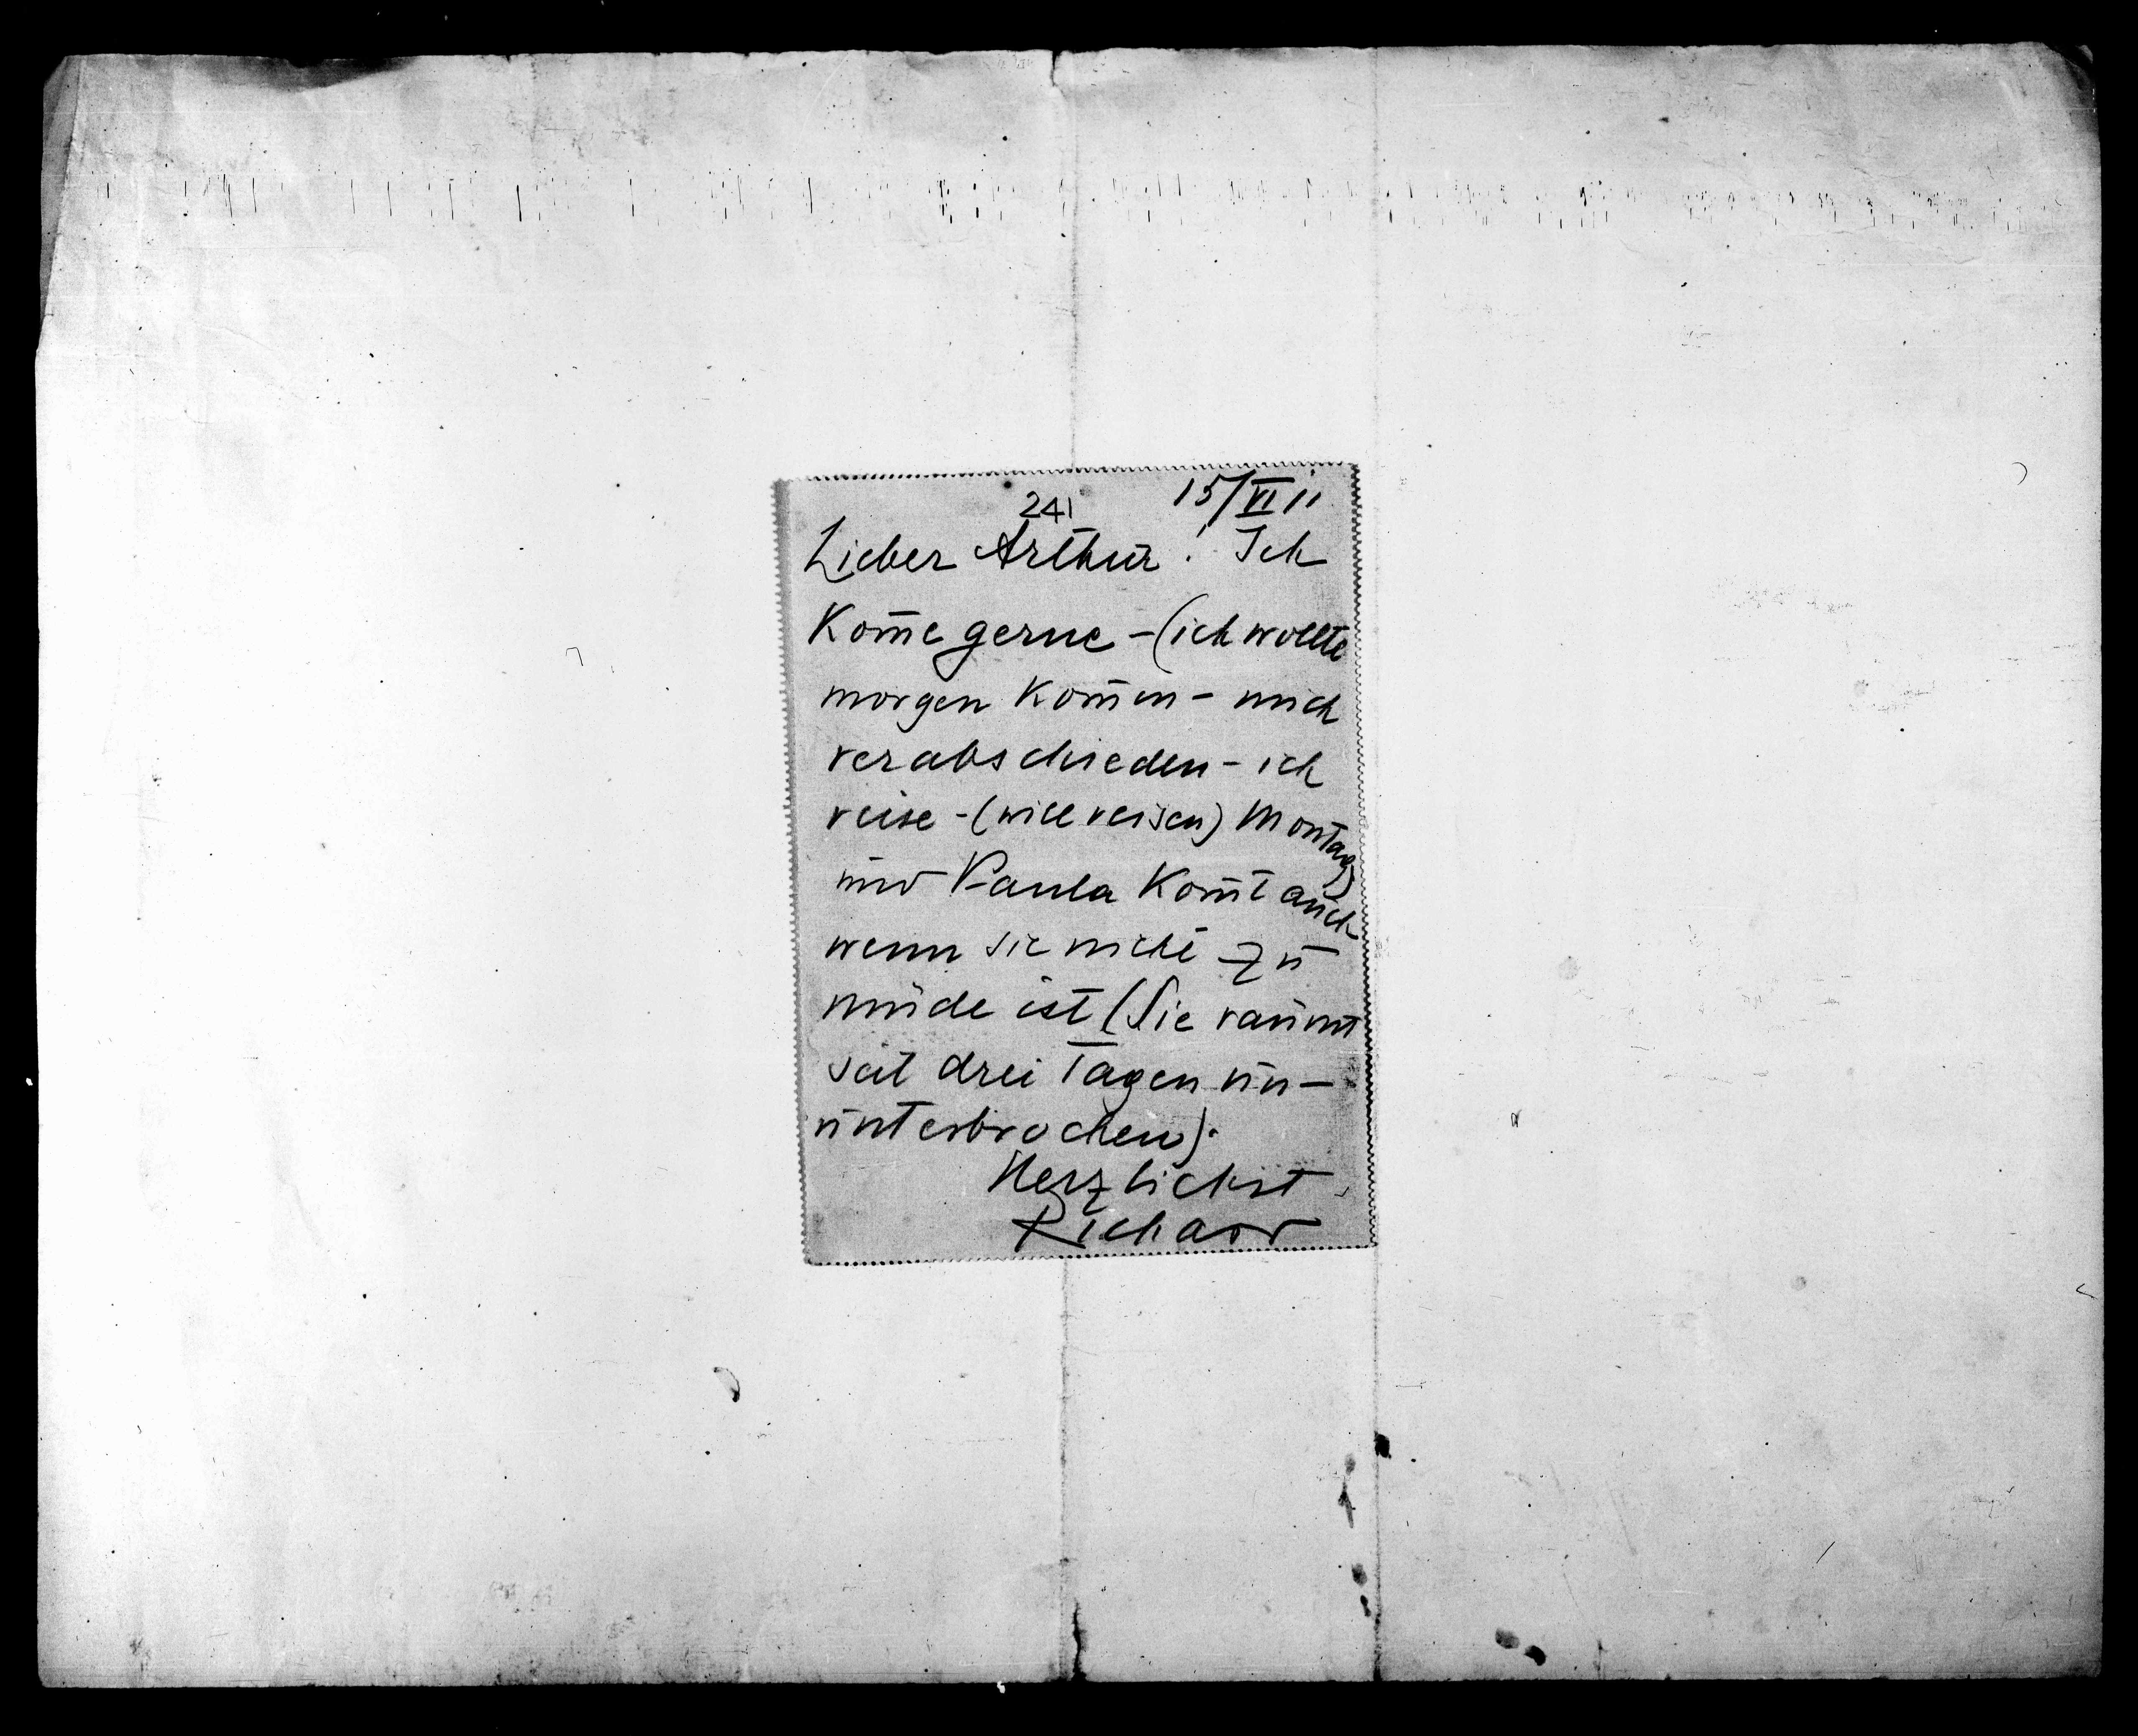 241 15/VI 11
Lieber Arthur! Ich
kom̄e gerne – (ich wollte
morgen kom̄en – mich
verabschieden – ich
reise – (will reisen) Montag)
und Paula kom̄t auch
wenn sie nicht zu
müde ist (Sie räumt
seit drei Tagen un–
unterbrochen).
Herzlichst
Richard